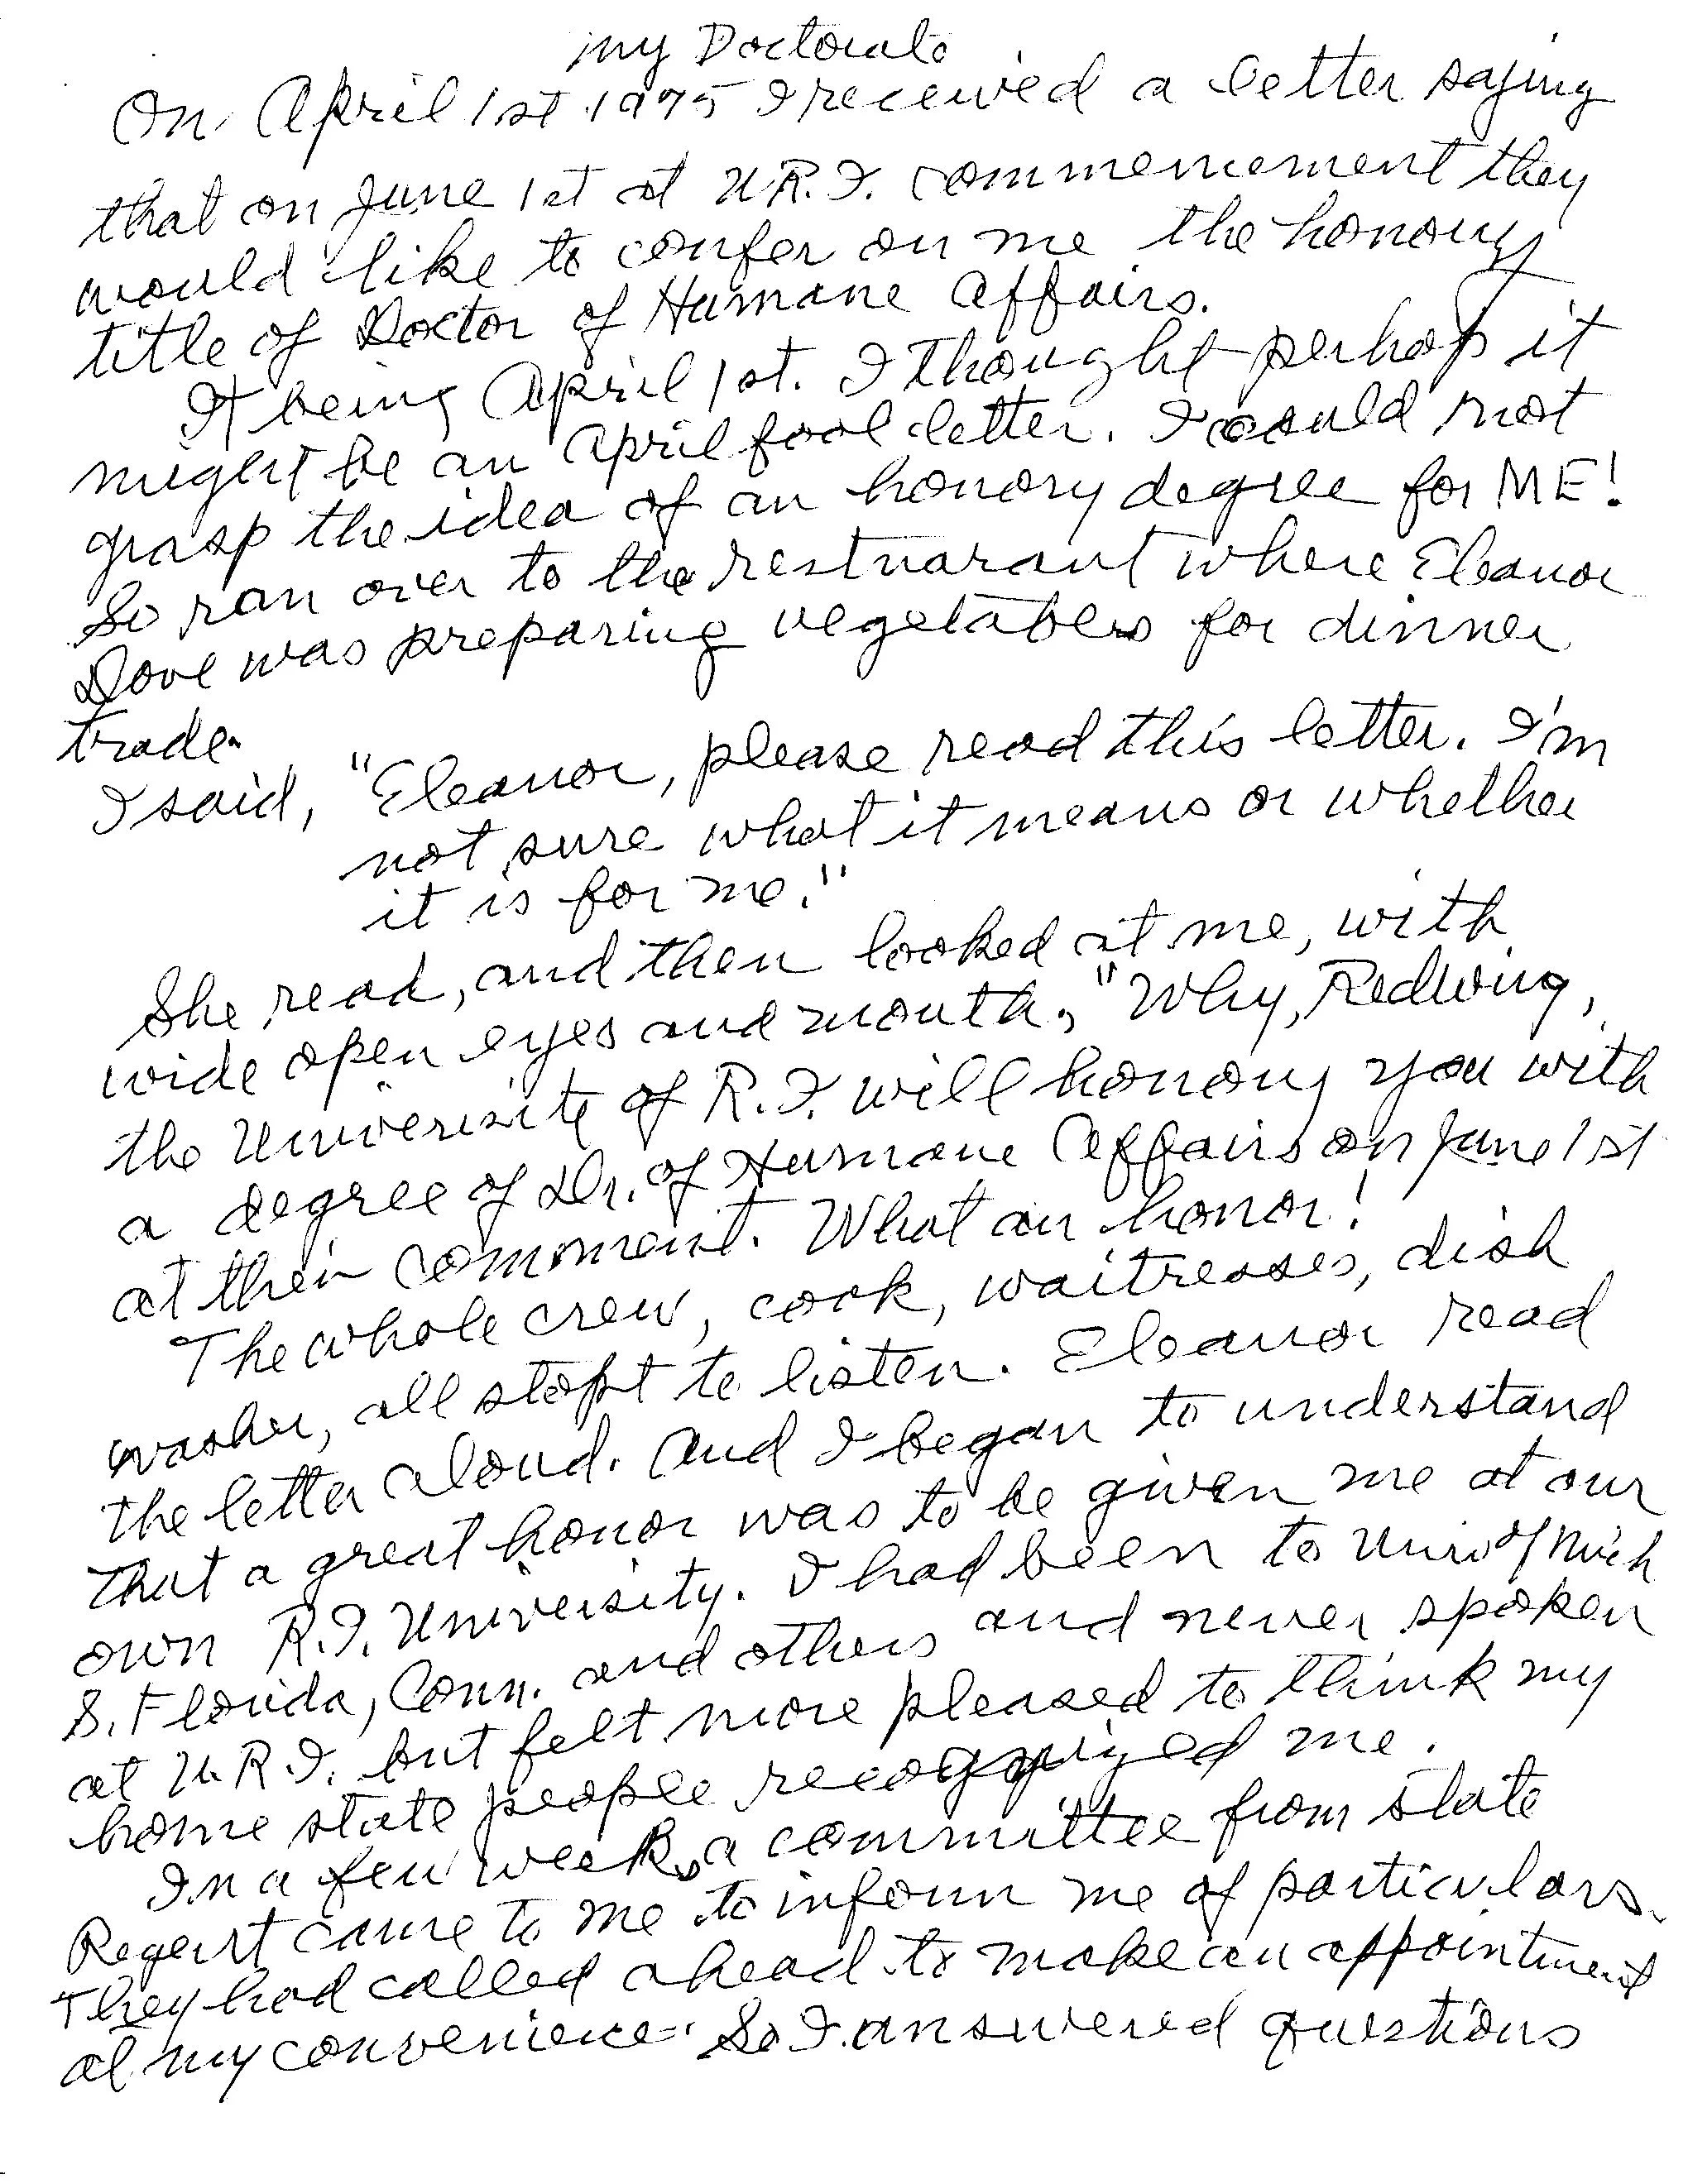 my Doctorate
On April 1st 1975 I received a letter saying
that on June 1st at U.R.I. commencement they
would like to confer on me the honory
title of Doctor of Humane Affairs.
It being April 1st. I thought perhaps it
might be an April fool letter. I could not
grasp the idea of an honory degree for ME!
So ran over to the restuarant where Eleanor
Dove was preparing vegetables for dinner
trade.
I said, "Eleanor, please read this letter. I'm
not sure what it means or whether
it is for me."
She read, and then looked at me, with
wide open eyes and mouth, "Why, Redwing,
the University of R.I. will honory you with
a degree of Dr. of Humane Affairs on June 1st
at their comment. What an honor!
The whole crew, cook, waitresses, dish
washer, all stopt to listen. Eleanor read
the letter aloud. And I began to understand
that a great honor was to be given me at our
own R.I. University. I had been to Univ of Mich
S. Florida, Conn. and others and never spoken
at U.R.I. but felt more pleased to think my
home state people recognized me.
In a few weeks a committee from state
Regent came to me to inform me of particulars.
They had called ahead to make an appointment
at my convenience. So I answered questions